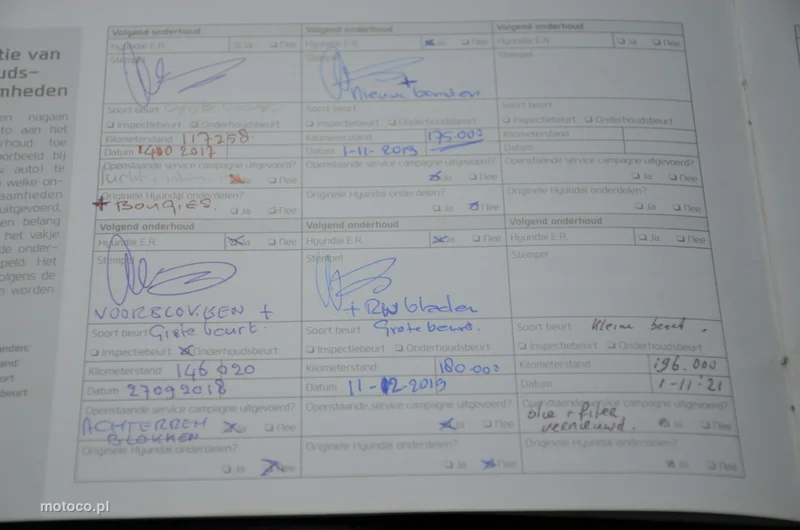 tie van
uds-
mheden
en nagaan
to aan het
rhoud toe
orbeeld bij
auto) te
welke on-
aamheden
uitgevoerd,
en belang
het vakje
de onder-
peld. Het
olgens de
worden.
anden:
end:
ort
beurt
Volgend onderhoud
Hyundai E.R. ❑ Ja ❑ Nee
Stempel
Soort beurt
❑ Inspectiebeurt ❑ Onderhoudsbeurt
Kilometerstand 117258.
Datum 2017
Openstaande service campagne uitgevoerd?
❑ Nee
Originele Hyundai onderdelen?
+ BOUGIES. ❑ Ja ❑ Nee
Volgend onderhoud
Hyundai E.R. Ja ❑ Nee
Stempel
+
Nieuwe banden
Soort beurt
❑ Inspectiebeurt ❑ Onderhoudsbeurt
Kilometerstand 175.000
Datum 1-11-2019
Openstaande service campagne uitgevoerd?
Ja ❑ Nee
Originele Hyundai onderdelen?
❑ Ja Nee
Volgend onderhoud
Hyundai E.R. ❑ Ja ❑ Nee
Stempel
Soort beurt
❑ Inspectiebeurt ❑ Onderhoudsbeurt
Kilometerstand
Datum
Openstaande service campagne uitgevoerd?
❑ Ja ❑ Nee
Originele Hyundai onderdelen?
❑ Ja ❑ Nee
Volgend onderhoud
Hyundai E.R. Ja ❑ Nee
Stempel
VOORBLOKKEN +
Soort beurt Grote beurt.
❑ Inspectiebeurt Onderhoudsbeurt
Kilometerstand 146020
Datum 27092018
Openstaande service campagne uitgevoerd?
ACHTERREM Ja ❑ Nee
BLOKKEN
Originele Hyundai onderdelen?
❑ Ja Nee
Volgend onderhoud
Hyundai E.R. Ja ❑ Nee
Stempel
+ RW bladen
Soort beurt Grote beurt.
❑ Inspectiebeurt ❑ Onderhoudsbeurt
Kilometerstand 180.000
Datum 11-12-2019
Openstaande service campagne uitgevoerd?
Ja ❑ Nee
Originele Hyundai onderdelen?
❑ Ja Nee
Volgend onderhoud
Hyundai E.R. ❑ Ja ❑ Nee
Stempel
Soort beurt Kleine beurt.
❑ Inspectiebeurt ❑ Onderhoudsbeurt
Kilometerstand 196.000
Datum 1-11-'21
Openstaande service campagne uitgevoerd?
olie + filter
vernieuwd. Ja ❑ Nee
Originele Hyundai onderdelen?
Ja ❑ Nee
motoco.pl